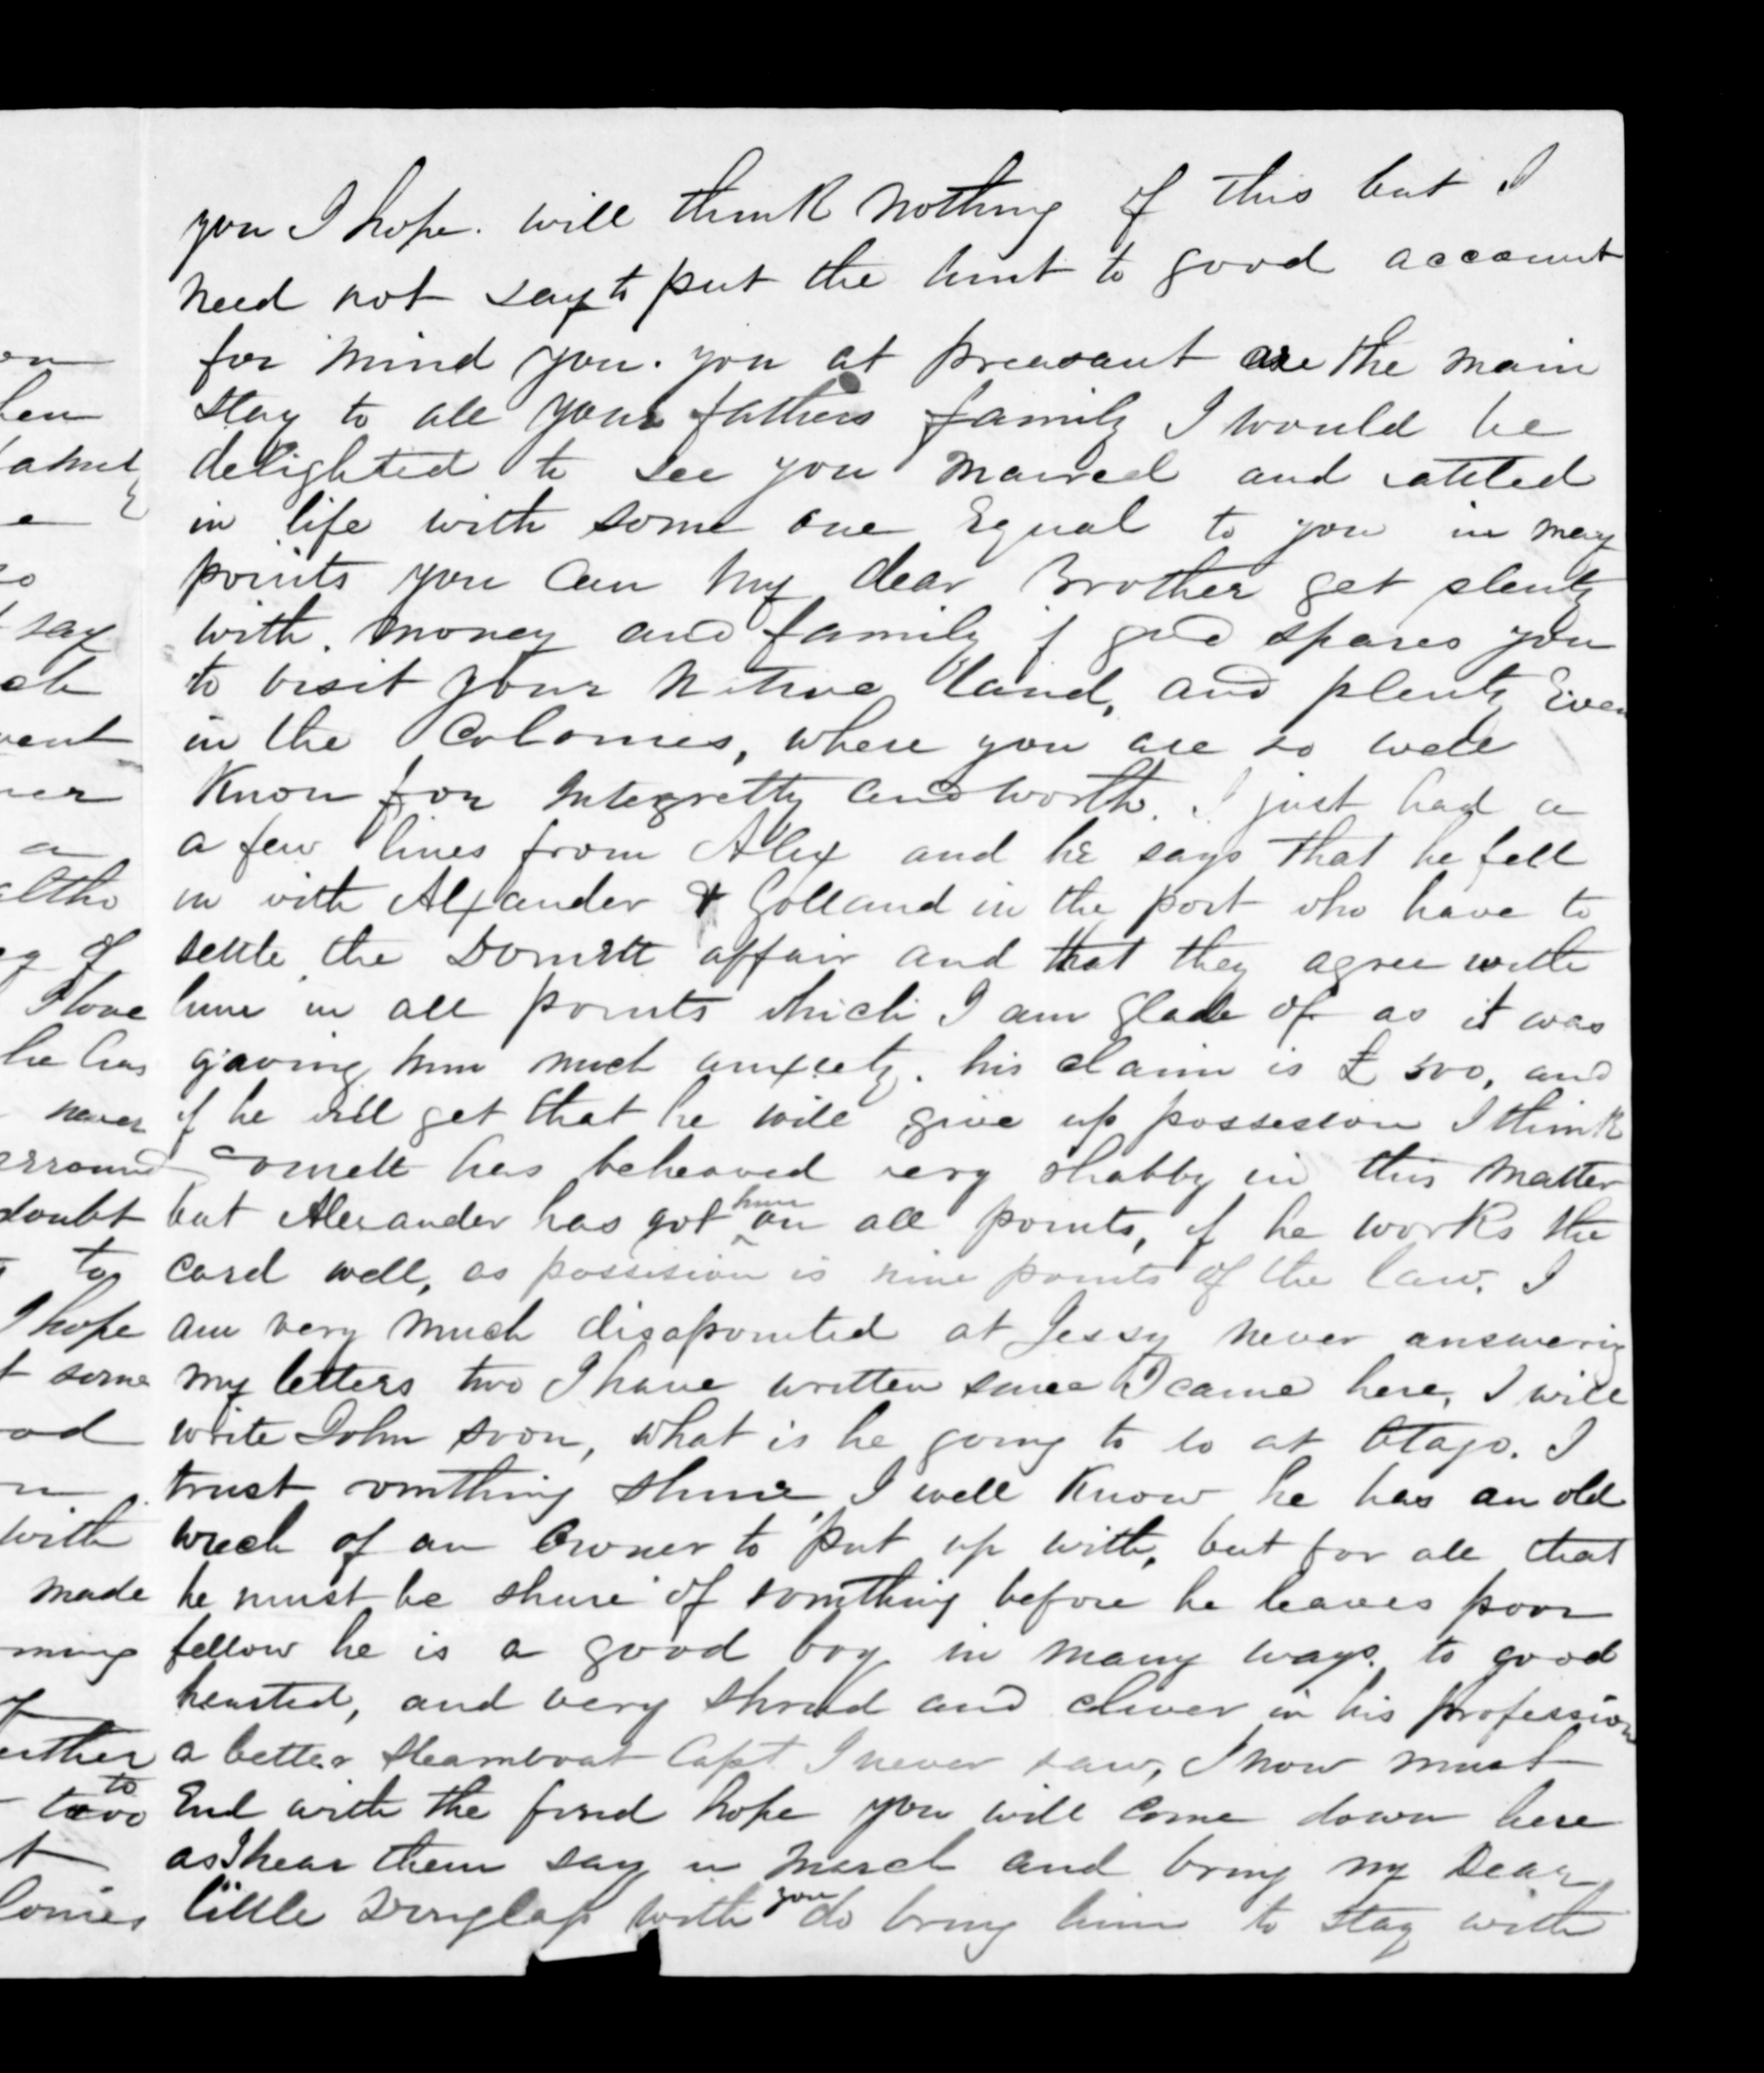 you I hope. will think nothing of this but I
need not say to put the hint to good account
for mind you. you at preasant are the main
stay to all your fathers family I would be
delighted to see you maired and sattled
in life with some one Equal to you in may
points you can my dear Brother get plenty
with. money and family if god spares you
to visit your native land, and plenty Even
in the Colonies, where you are so well
Know for Integretty and worth. I just had a
a few lines from Alex and he says that he fell
in with Alxander & Golland in the port who have to
settle the Domett affair and that they agree with
him in all points which I am glade of as it was
gaving him much anxiety. his claim is £ 500, and
if he will get that he will give up possession I think
Domett has beheaved very shabby in this matter
but Alexander has got him on all points, if he works the
card well, as possision is nine points of the law. I
am very much disapointed at Jessy never answering
my letters two I have written since I came here, I will
write John soon, what is he going to do at Otago. I
trust somthing shure, I well Know he has an old
wrech of an Owner to put up with, but for all that
he must be shure of somthing before he leaves poor
fellow he is a good boy in many ways. to good
hearted, and very shrud and cliver in his profession
a better Steamboat Capt. I never saw, I now must
End with the fond hope you will come down here
as I hear them say in March and bring my Dear
little with you do bring him to stay with